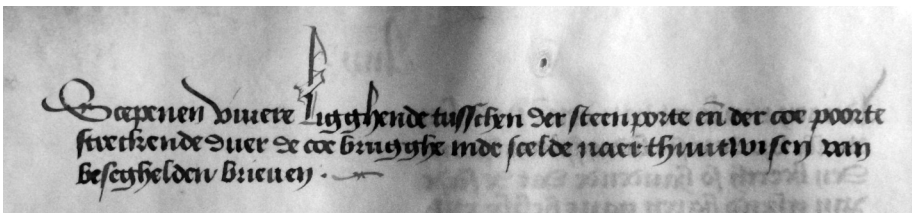 Scepenen vivere Ligghende tusschen der steenporte eñ der coe poorte
streckende duer de coe brugghe inde scelde naer thuutwisen van
beseghelden brieuen .